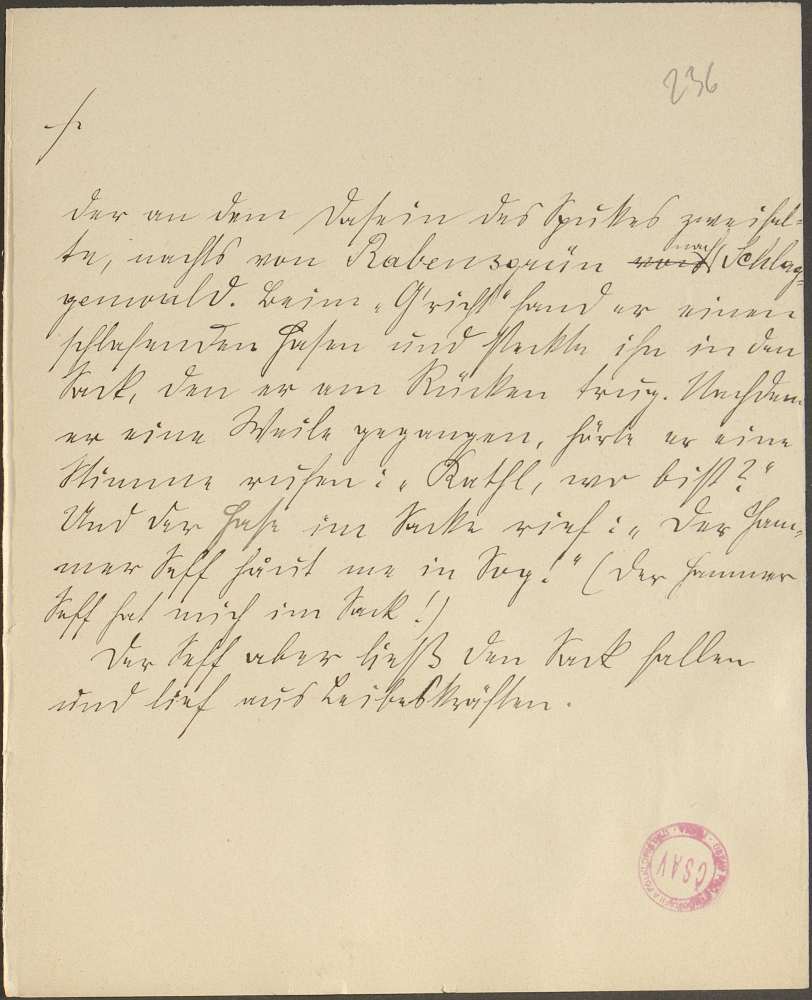 236
./.
der an dem Dasein des Spukes zweifel-
te, nachts von Rabensgrün nach Schlag-
genwald. Beim „G'richt“ fand er einen
schlafenden Hasen und steckte ihn in den
Sack, den er am Rücken trug. Nachdem
er eine Weile gegangen, hörte er eine
Stimme rufen: „Kathl, wo bist?“
Und der Hase im Sacke rief: „Der Ham-
mer Seff håut me in Sog!“ (Der Hammer
Seff hat mich im Sack!)
Der Seff aber ließ den Sack fallen
und lief aus Leibeskräften.
ČSAV